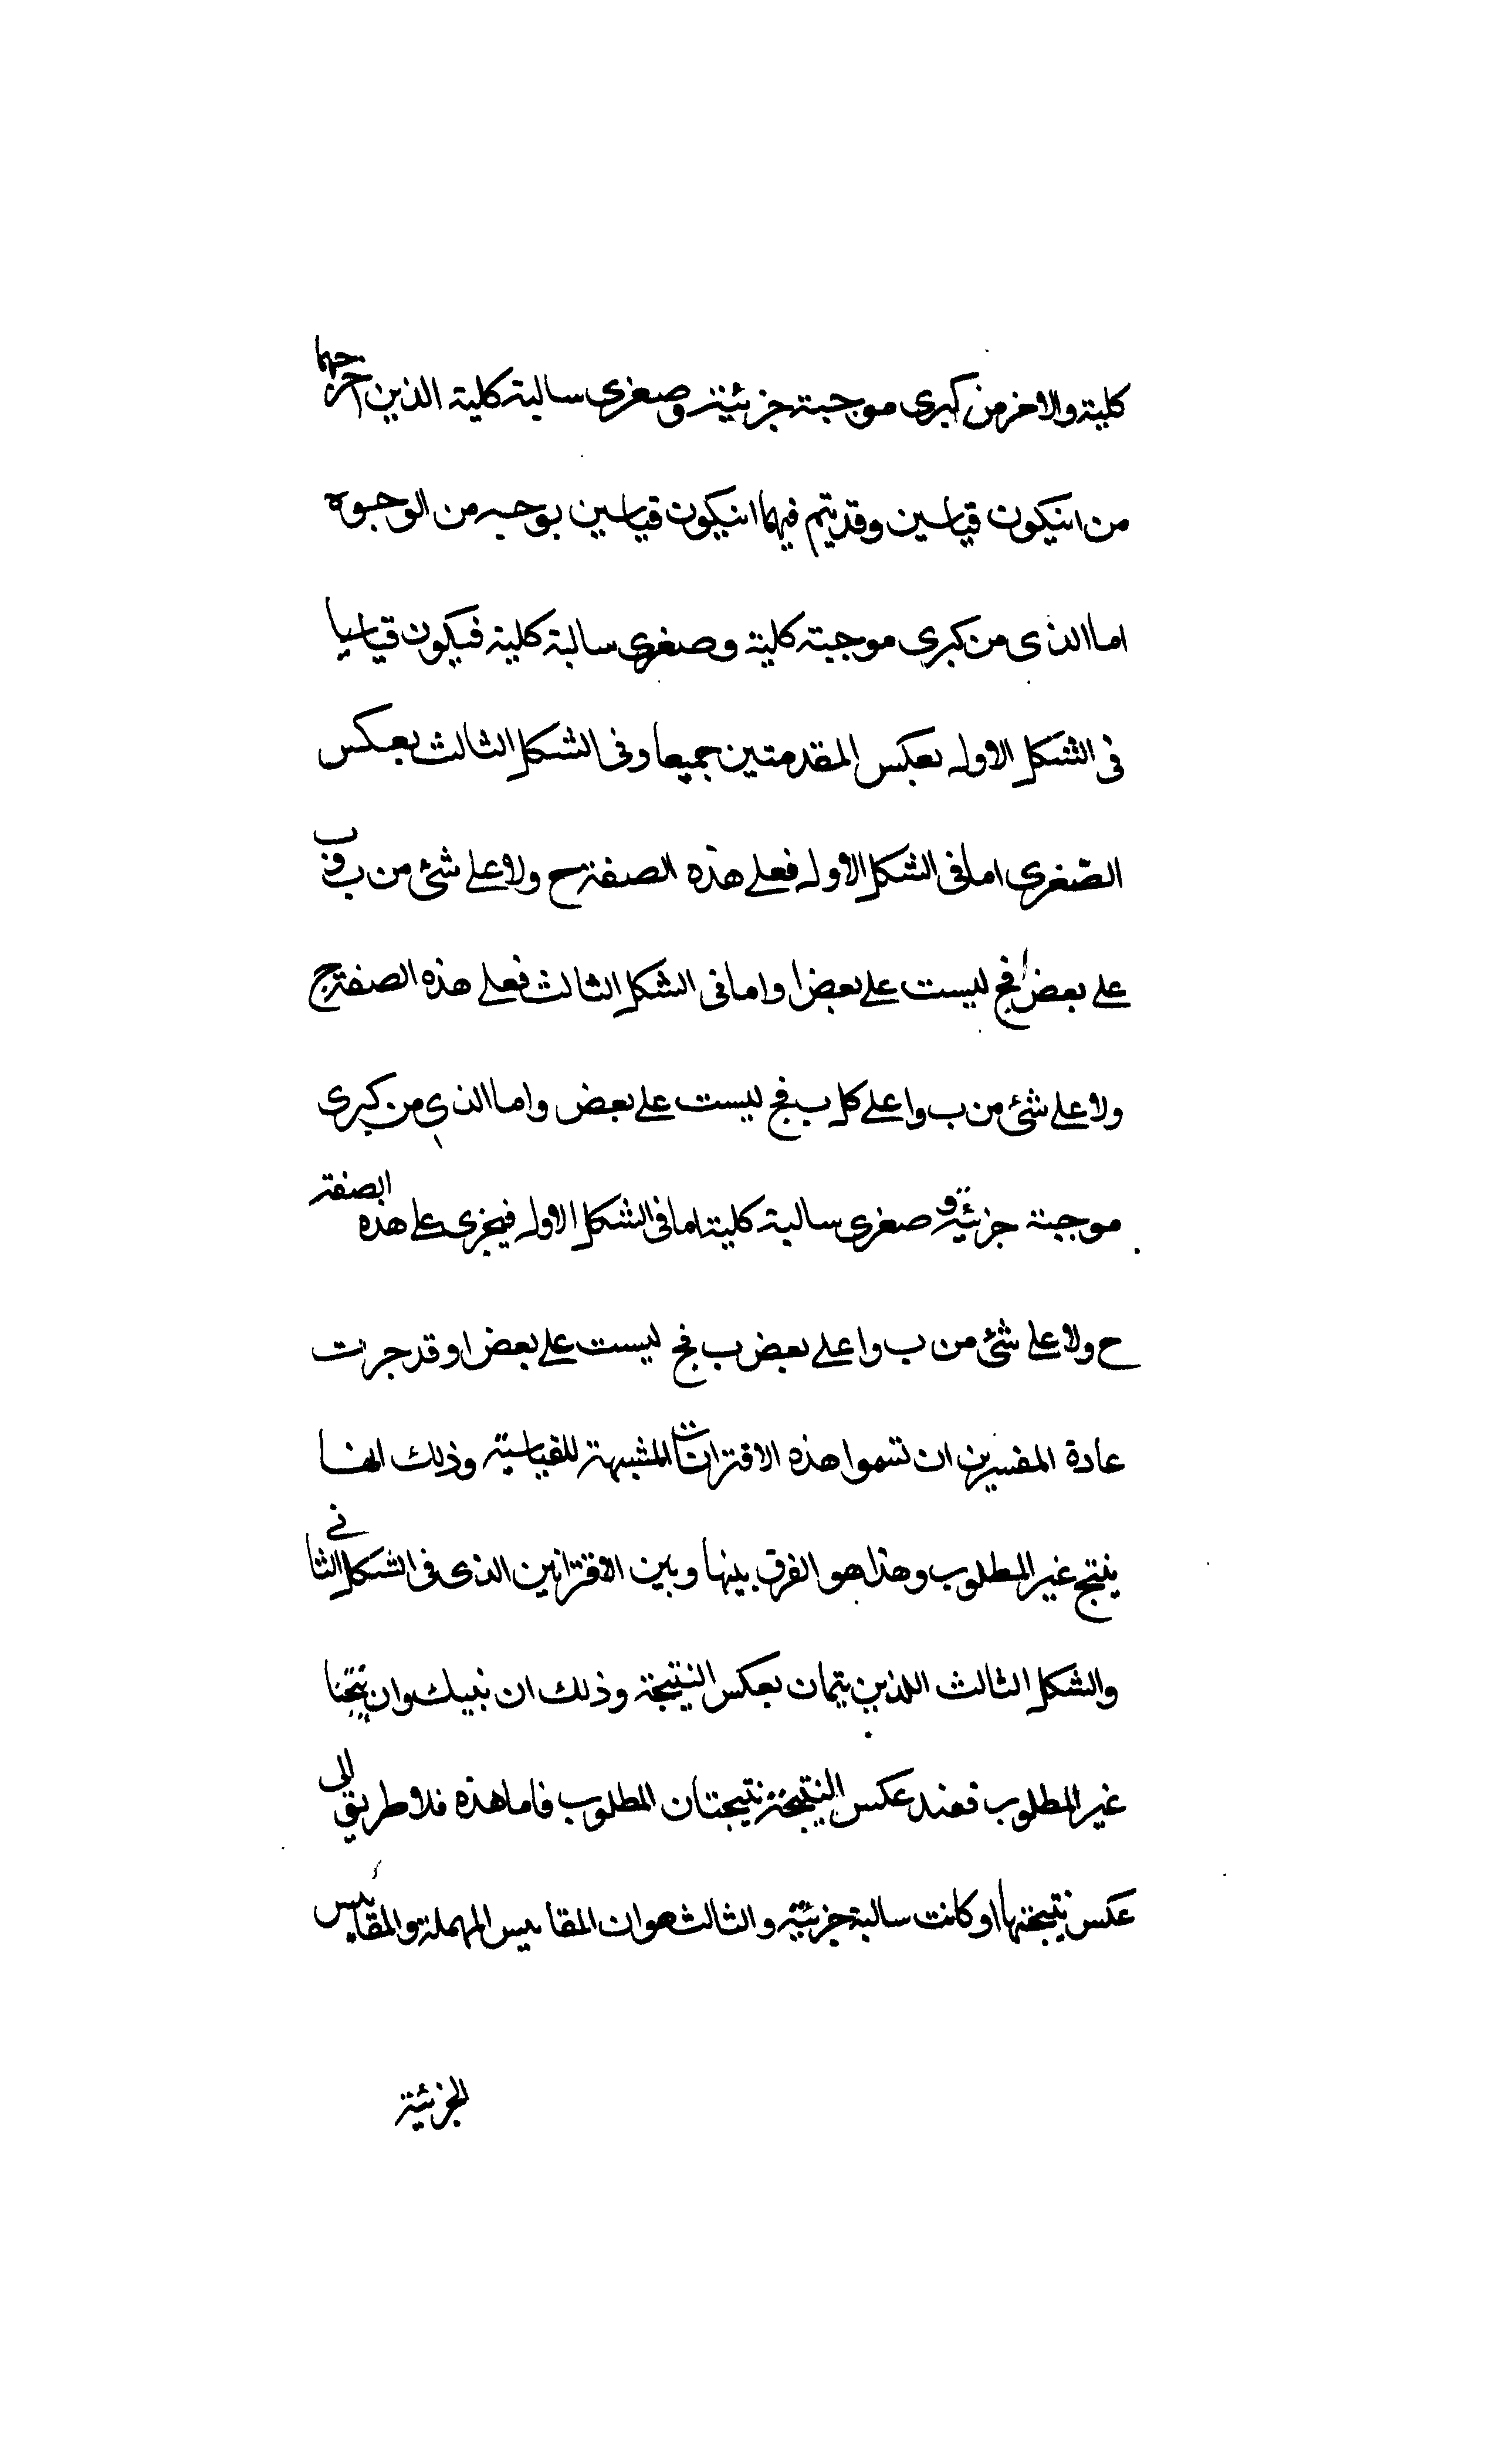 كلية والاخر من كبرى موجبة جزئية وصغرى سالبة كلية الذين اخرجهما
من انيكون قياسين وقد يتم فيهما انيكون قياسين بوجه من الوجوه
اما الذى من كبرى موجبة كلية وصغرى سالبة كلية فيكون قياسيا
فى الشكل الاول بعكس المقدمتين جميعا وفى الشكل الثالث بعكس
الصّغرى اما فى الشكل الاول فعلى هذه الصفة ح ولا على شئ من ب وب
على بعض ا فج ليست على بعض ا واما فى الشكل الثالث فعلى هذه الصفة ج
ولا على شئ من ب وا على كل ب فج ليست على بعض واما الذى من كبرى
موجبة جزئية و صغرى سالبة كلية اما فى الشكل الاول فيجزى على هذه الصفة
ح ولا على شئ من ب وا على بعض ب فج ليست على بعض ا وقد جرت
عادة المفسرين ان تسموا هذه الاقترانات المشبهة للقياسية وذلك انها
ينتج غير المطلوب وهذا هو الفرق بينها وبين الاقترانين الذى فى الشكل الثانى
والشكل الثالث اللذين يتمان بعكس النتيجة وذلك ان نبيك وان نتجنا
غير المطلوب فعند عكس النتيجة نتيجتان المطلوب فاما هذه فلا طريق الى
عكس نتيجتها او كانت سالبة جزئية والثالث هو ان المقاييس المهملة والمقاييس
الجزئية